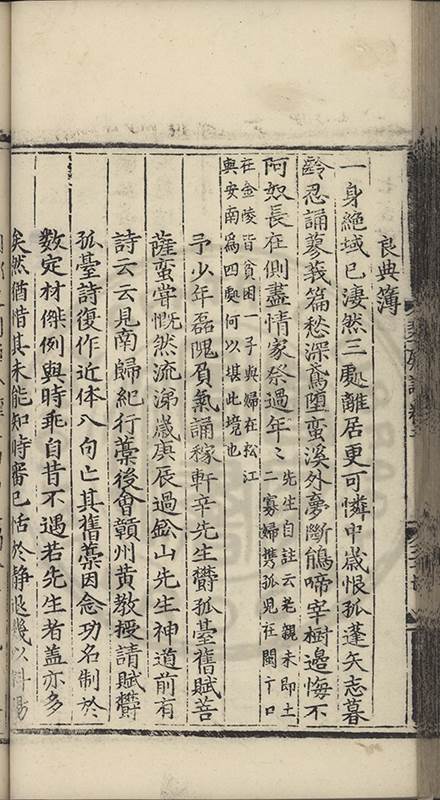 良典簿
一身絶域已凄然三處離居更可憐中歲恨孤蓬矢志暮
齡忍誦蓼莪篇愁深鳶墮蠻溪外夢斷鵑啼宰樹邊悔不
阿奴長在側盡情家祭過年〻
先生自註云老親未即土
二寡婦携孤児在閩丁口
在金陵皆貧困一子與婦在松江
與安南爲四處何以堪此境也
予少年磊隗負氣誦稼軒辛先生欝孤臺舊賦菩
薩蛮嘗慨然流涕歲庚辰過鉛山先生神道前有
詩云云見南歸紀行藁後會贛州黄教授請賦欝
孤臺詩復作近体八句亡其舊藁因念功名制於
數定材傑例與時乖自昔不遇若先生者盖亦多
矣然猶惜其未能知時審己恬於静退幾以斜陽